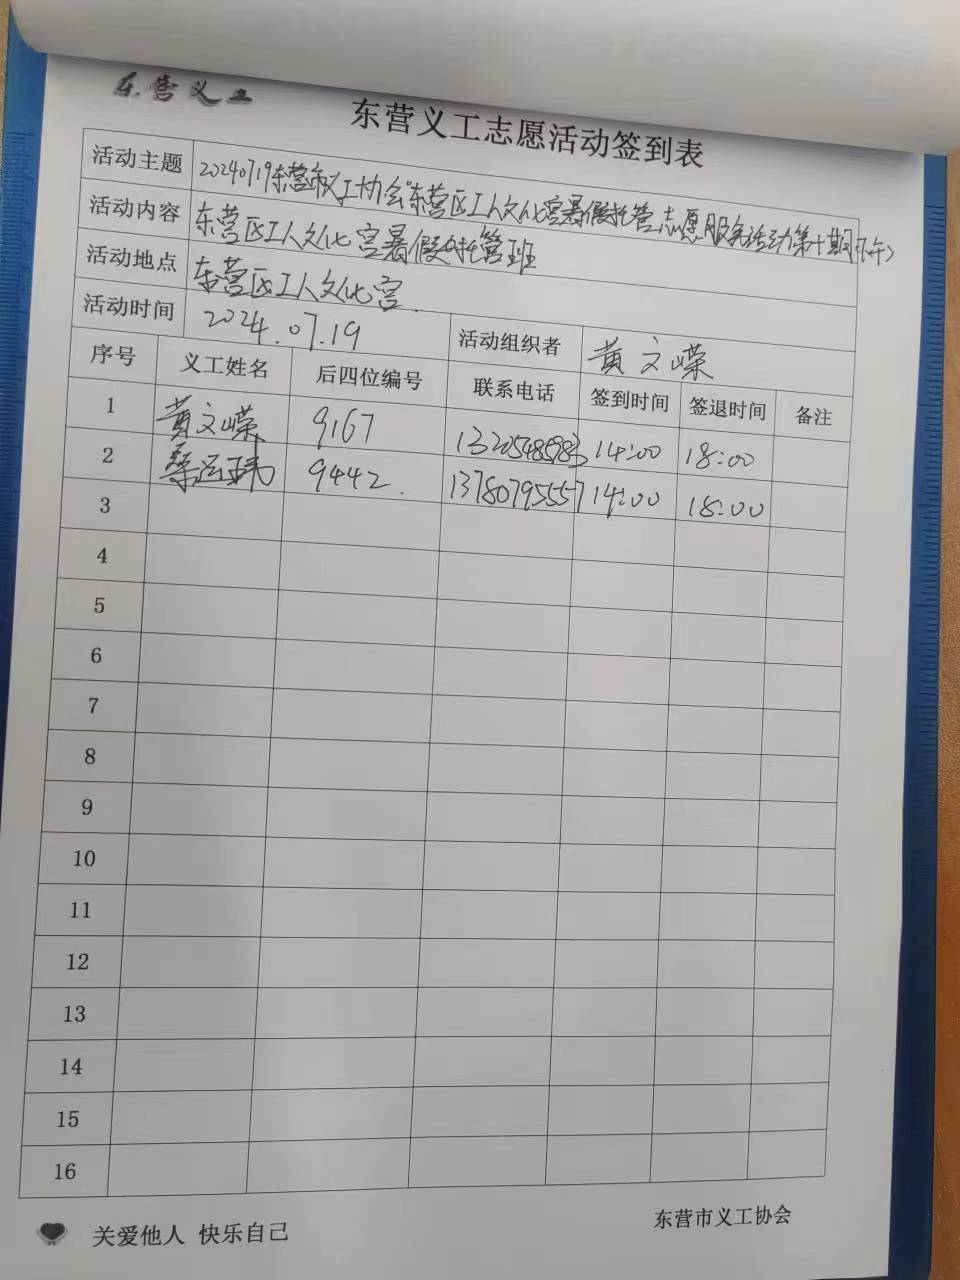 东营义工
东营义工志愿活动签到表
活动主题 20240719东营市义工协会"东营区工人文化宫暑假托管志愿服务活动第十期(下午)
活动内容 东营区工人文化宫暑假托管班
活动地点 东营区工人文化宫.
活动时间 2024.07.19 活动组织者 黄文嵘
序号 义工姓名 后四位编号 联系电话 签到时间 签退时间 备注
1 黄文嵘 9167 13205485983 14:00 18:00
2 9442. 13780795557 14:00 18:00
3
4
5
6
7
8
9
10
11
12
13
14
15
16
关爱他人 快乐自己 东营市义工协会